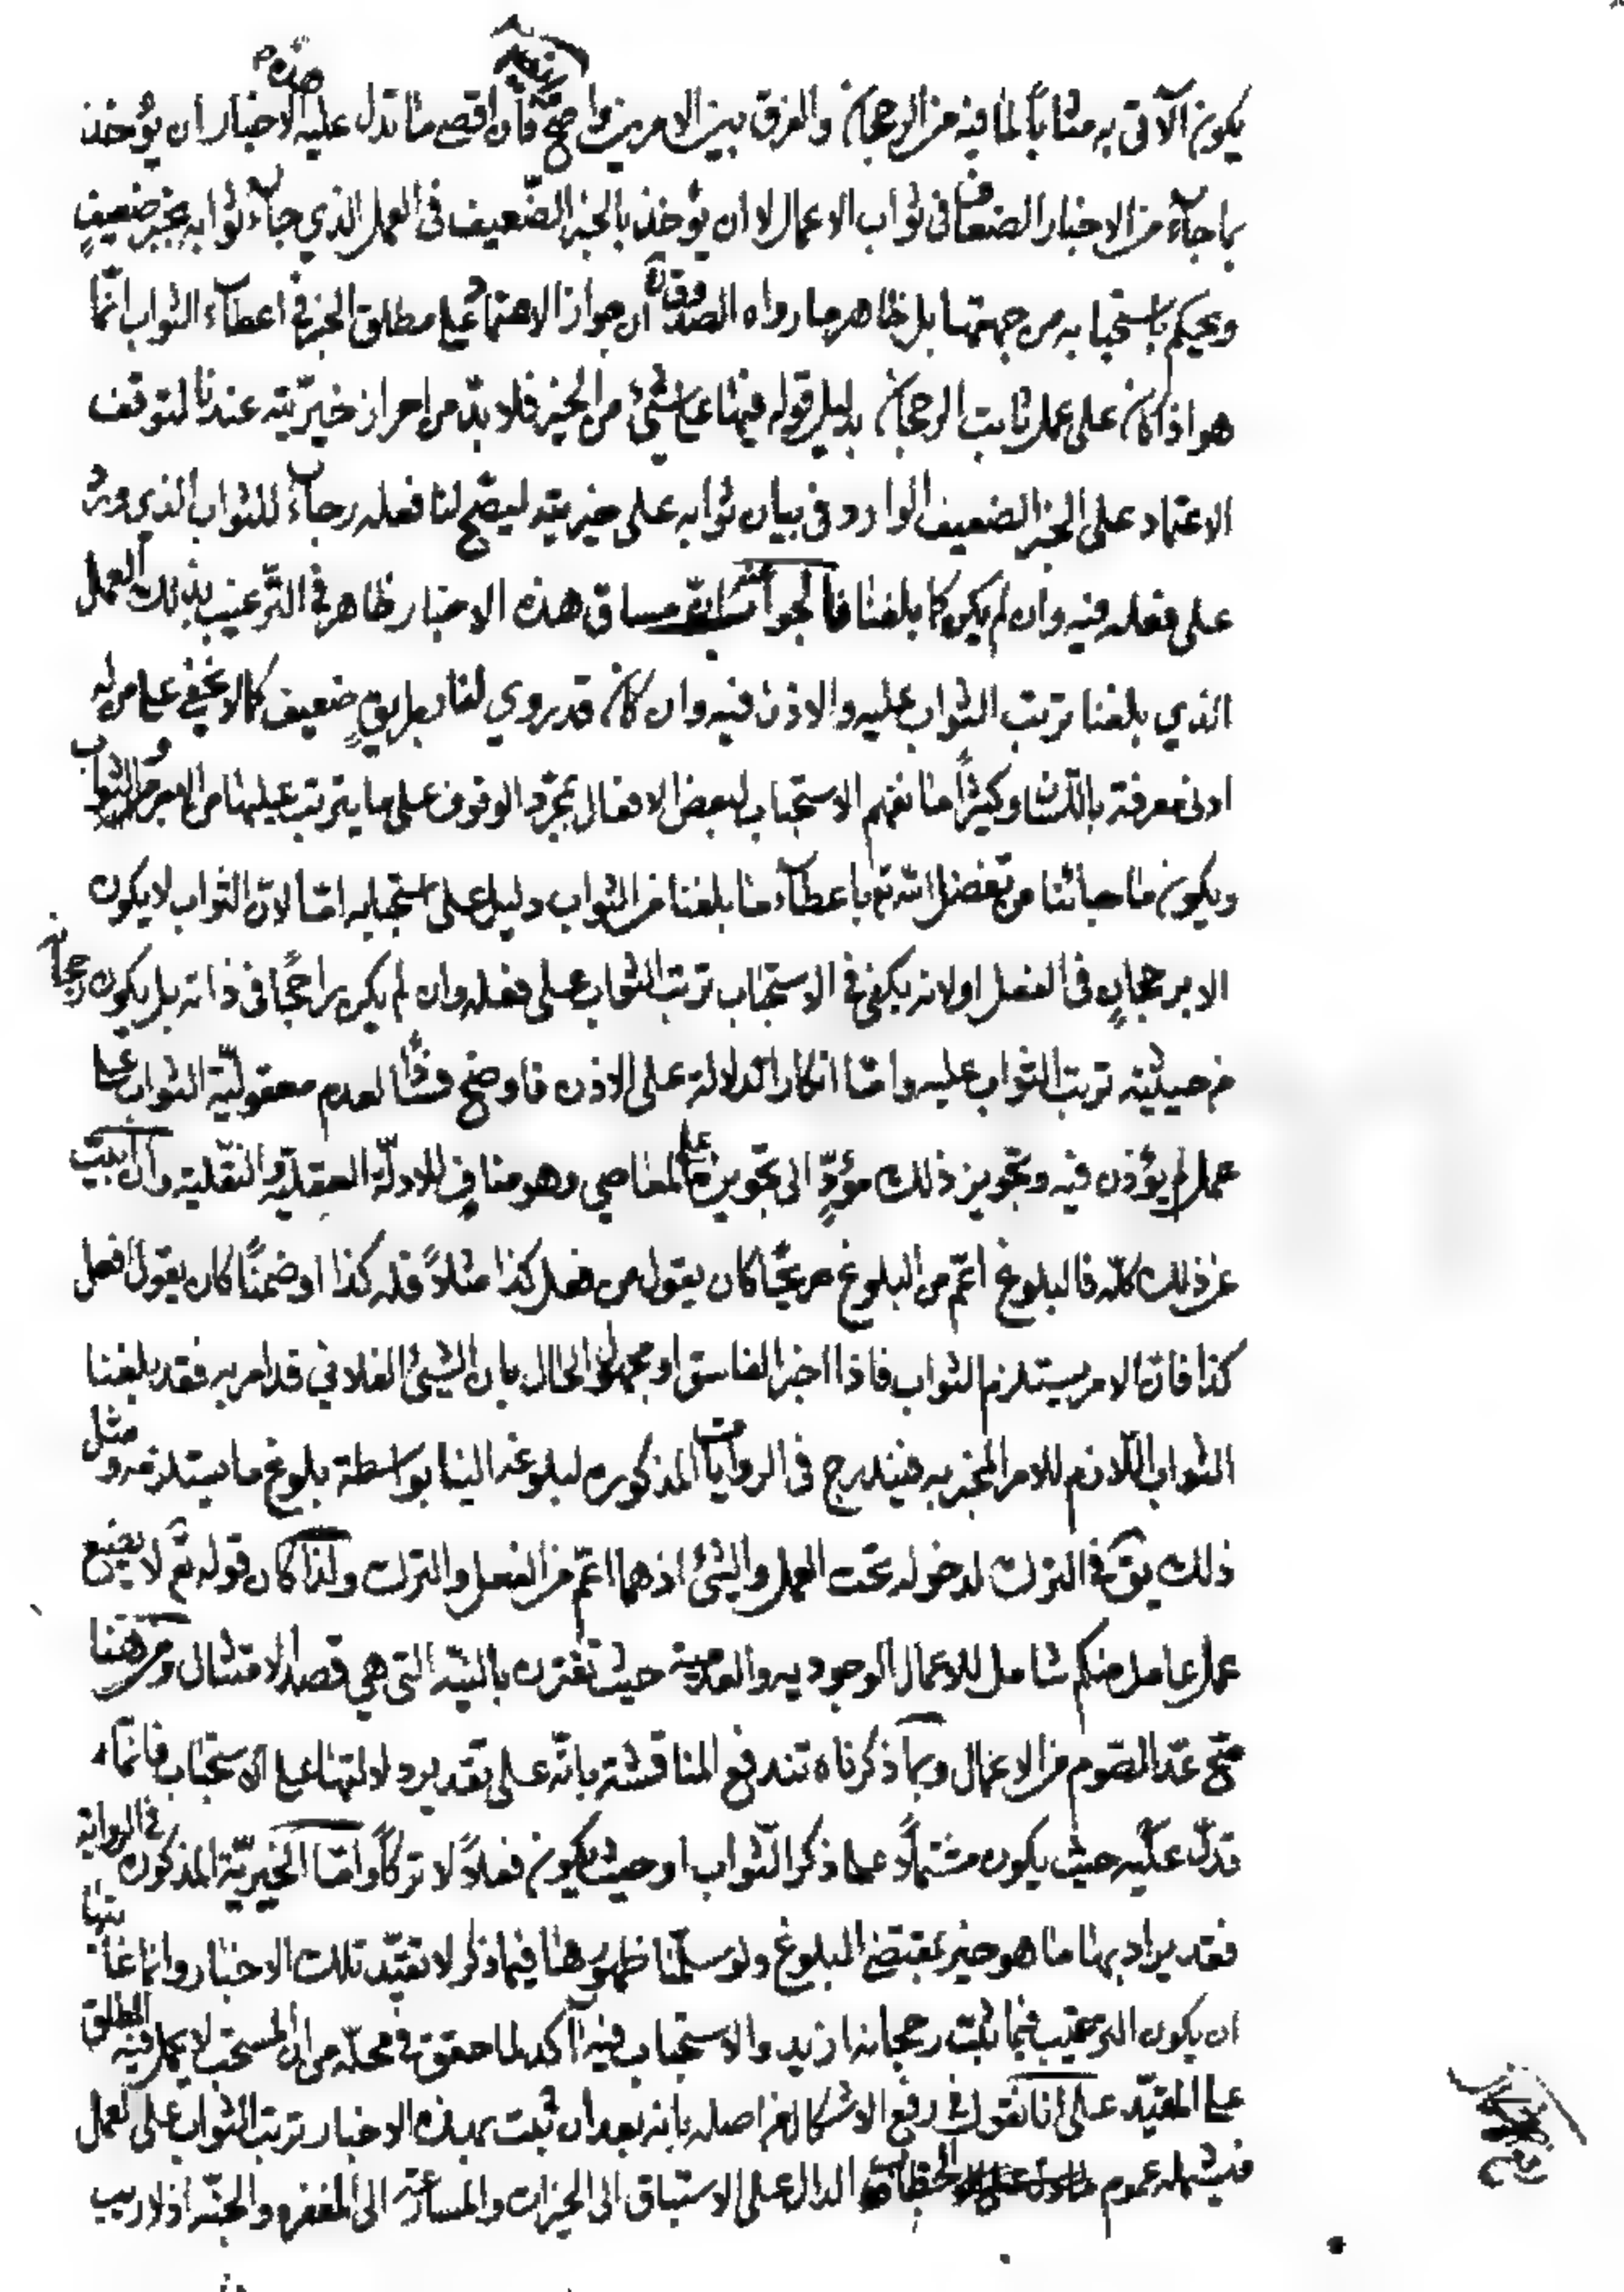 يكون الآتي به مثاباً لما فيه من الرجحان والفرق بين الامرين واضح فان اقصى ما تدل عليه هذه الاخبار ان يؤخذ
بما جآء من الاخبار الضعاف في ثواب الاعمال لا ان يؤخذ بالخبر الضّعيف في العمل الذي جآء ثوابه بخبر ضعيفٍ
ويحكم باستحبابه من جهتها بل ظاهر ما رواه الصدوق ان جواز الاعتماد على مطلق الخبر في اعطآء الثواب انّما
هو اذا كان على عمل ثابت الرجحان بدليل قوله فيها على شئ من الخير فلا بدّ من احراز خيريّته عندنا لتوقف
الاعتماد على الخبر الضعيف الوارد في بيان ثوابه على خيريته ليصّح لنا فعله رجآءً للثواب الذي ورد
على فعله فيه وان لم يكن كما بلغنا فالجواب عنه انّ مساق هذه الاخبار ظاهر في التّرغيب بذلك العمل
الذي بلغنا ترتب الثواب عليه والاذن فيه وان كان قد روي لنا بطريقٍ ضعيف كما لا يخفى على من له
ادنى معرفة باللّسان وكثيراً ما نفهم الاستحباب لبعض الافعال بمجرّد الوقوف على ما يترتب عليها من الاجر والثواب
ويكون ما جائنا من تفضل الله تع باعطآء ما بلغنا من الثواب دليل على استحبابه امّا لانّ الثواب لا يكون
الا برجحانٍ في الفعل او لانه يكفي في الاستحباب ترتب الثواب على فعله وان لم يكن راجحًا في ذاته بل يكون رجحانه
من حيثية ترتب الثواب عليه وامّا انكار الدلالة على الاذن فاوضح فسادًا لعدم معقوليّة الثواب على
عمل لم يؤذن فيه وتجويز ذلك مؤدٍّ الى تجويزه على المعاصي وهو منافٍ للادلّة العقليّة والنقلية وان ابيت
عن ذلك كلّه فالبلوغ اعمّ من البلوغ صريحًا كان يقول من فعل كذا مثلاً فله كذا او ضمنًا كان يقول افعل
كذا فانّ الامر يستلزم الثواب فاذا اخبر الفاسق او مجهول الحال بان الشئ الفلاني قد امر به فقد بلغنا
الثواب اللّازم للامر المخبر به فيندرج في الروايات المذكوره لبلوغه الينا بواسطة بلوغ ما يستلزمه ومثل
ذلك يق في الترك لدخوله تحت العمل والشئ اذ هما اعمّ من الفعل والترك ولذا كان قوله تع لا يضيع
عمل عامل منكم شامل للاعمال الوجوديه والعدمية حيث تقترن بالنيّة التي هي قصد الامتثال ومن هنا
صح عدّ الصّوم من الاعمال وبما ذكرناه تندفع المناقشة بانّه على تقدير دلالتها على الاستحباب فانّما
تدلّ عليه حيث يكون مشتملاً على ذكر الثواب او حيث يكون فعلاً لا تركاً وامّا الخيريّة المذكوره في الروايه
فقد يراد بها ما هو خير بمقتضى البلوغ ولو سلّمنا ظهورها فيما ذكر لا تقيّد تلك الاخبار وانما غايتها
ان يكون الترغيب فيما ثبت رجحانه ازيد والاستحباب فيه آكد لما حقق في محلّه من ان المستحب لا يحمل فيه المطلق
على المقيّد على انا نقول في رفع الاشكال من اصله بانه بعد ان ثبت بهذه الاخبار ترتب الثواب على العمل
فيشمله عموم الخطاب الدال على الاستباق الى الخيرات والمسارعة الى المغفره والجنّه اذ لا ريب